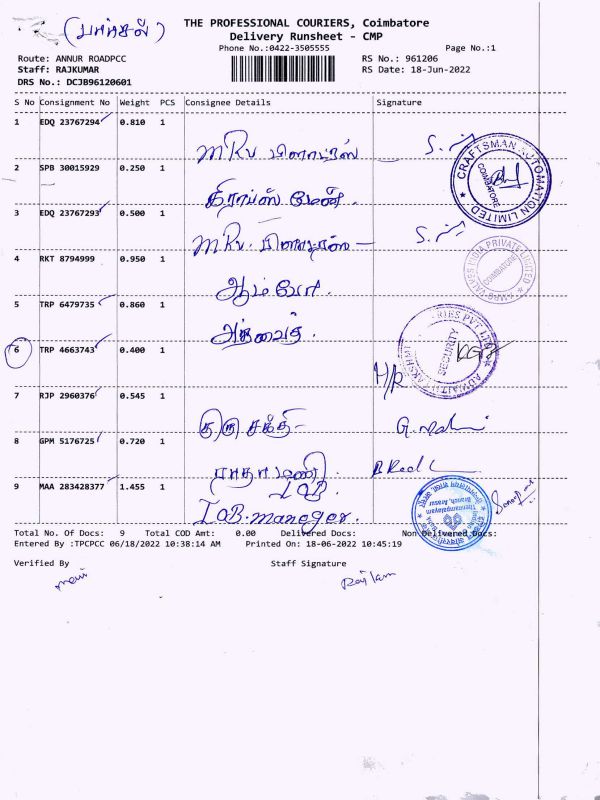 (பார்சல்)
THE PROFESSIONAL COURIERS, Coimbatore
Delivery Runsheet - CMP
Phone No.:0422-3505555
Page No.:1
Route: ANNUR ROADPCC
RS No.: 961206
Staff: RAJKUMAR
RS Date: 18-Jun-2022
DRS No.: DCJB96120601
S No Consignment No Weight PCS Consignee Details Signature
1 EDQ 23767294 0.810 1
MRV
2 SPB 30015929 0.250 1
CRAFTSMAN AUTOMATION LIMITED
COIMBATORE
3 EDQ 23767293 0.500 1
MRV.
4 RKT 8794999 0.950 1
VALVES INDIA PRIVATE LIMITED
COIMBATORE
5 TRP 6479735 0.860 1
அத்வைத்
6 TRP 4663743 0.400 1
SECURITY
7 RJP 2960376 0.545 1
திரு சக்தி
8 GPM 5176725 0.720 1
ராதாமணி
9 MAA 283428377 1.455 1
IOB
IOB. maneger.
Total No. Of Docs: 9 Total COD Amt: 0.00 Delivered Docs: Non Delivered Docs:
Entered By :TPCPCC 06/18/2022 10:38:14 AM Printed On: 18-06-2022 10:45:19
Verified By Staff Signature